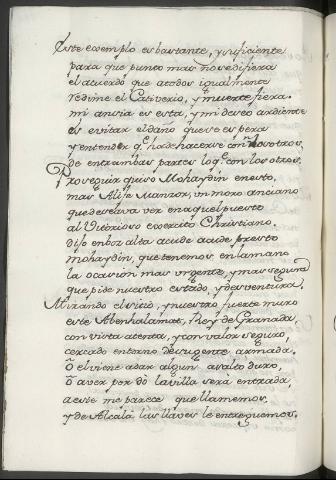 Este exemplo es bastante, y suficiente
para que punto mas ño se difiera
el acuerdo que atodos igualmente
redime el Cativerio, y muerte fiera.
mi ansia es esta, y mi deseo ardiente
es evitar el daño que se espera
y entender q̃ ha de hacerse con ñosotros
de entrambas partes lo q̃ con los otros.
Proseguir quiso Mohaydin en esto,
mas Alife Manzor, un moro anciano
que deseava ver en aquel puesto
al Victorioso exercito Christiano.
dijo en boz alta acude acude presto
mohaydin, que tenemos en la mano
la ocasion mas urgente, y mas segura
que pide nuestro estado, y desventura.
Mirando el sitio, y nuestro fuerte muro
este Abenhalamar, Rey de Granada,
con vista atenta, y con valor seguro,
cercado entorno de su gente armada.
õ el viene a dar algun asalto duro,
õ a ver por dò la Villa serà entrada,
a este me parece que llamemos.
y de Alcalà las llaves le entreguemos.